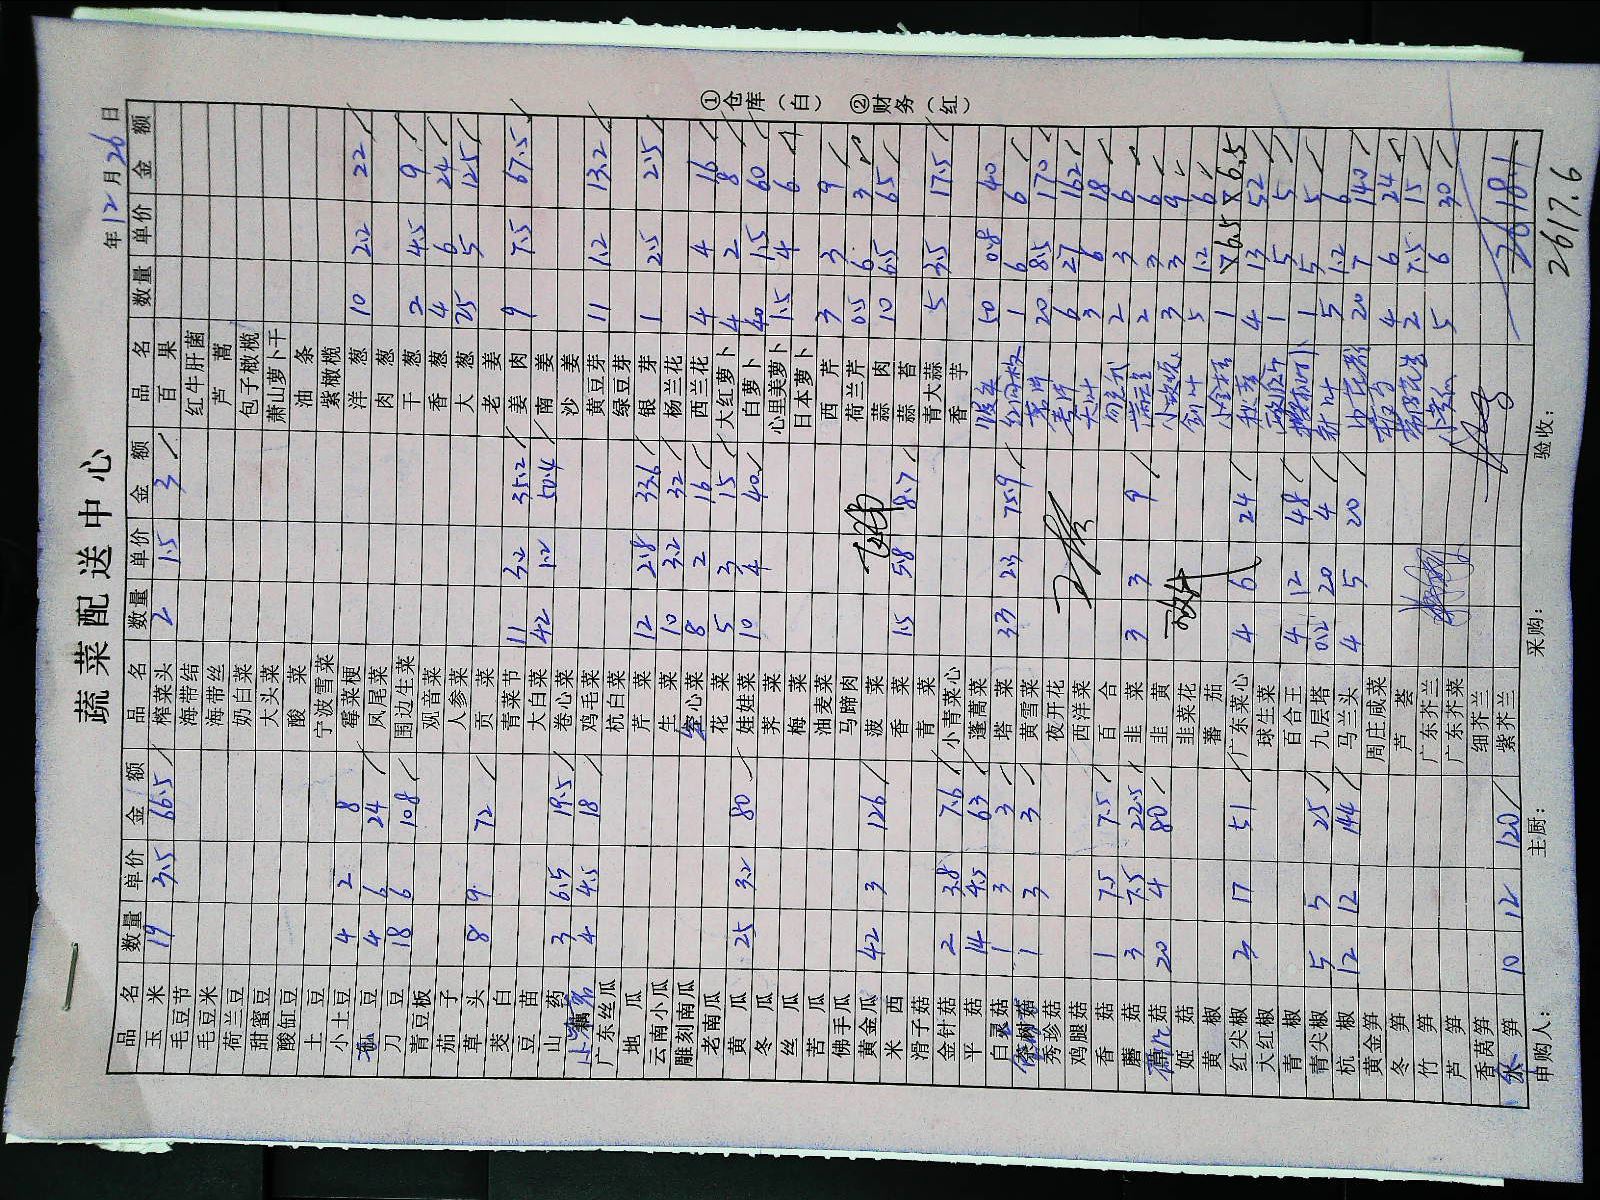 蔬菜配送中心
年12月26日
品名 数量 单价 金额 品名 数量 单价 金额 品名 数量 单价 金额
玉米 19 3.5 66.5 榨菜头 2 1.5 3 百果
毛豆节 海带结 红牛肝菌
毛豆米 海带丝 芦蒿
荷兰豆 奶白菜 包子橄榄
甜蜜豆 大头菜 萧山萝卜干
酸缸豆 酸菜 油条
土豆 宁波雪菜 紫橄榄
小土豆 4 2 8 霉菜梗 洋葱 10 2.2 22
豆 4 6 24 凤尾菜 肉葱
刀豆 18 6 108 围边生菜 干葱 2 4.5 9
青豆板 观音菜 香葱 4 6 24
茄子 人参菜 大葱 25 5 125
草头 8 9 72 贡菜 老姜
茭白 青菜节 11 3.2 35.2 姜肉 9 7.5 67.5
豆苗 大白菜 42 1.2 50.4 南姜
山药 3 6.5 19.5 卷心菜 沙姜
藕 4 4.5 18 鸡毛菜 黄豆芽 11 1.2 13.2
广东丝瓜 杭白菜 绿豆芽
地瓜 芹菜 12 2.8 33.6 银芽 1 2.5 2.5
云南小瓜 生菜 10 3.2 32 杨兰花
雕刻南瓜 心菜 8 2 16 西兰花 4 4 16
老南瓜 花菜 5 3 15 大红萝卜 4 2 8
黄瓜 25 3.2 80 娃娃菜 10 4 40 白萝卜 40 1.5 60
冬瓜 荠菜 心里美萝卜 1.5 4 6
丝瓜 梅菜 日本萝卜
苦瓜 油麦菜 西芹 3 3 9
佛手瓜 马蹄肉 荷兰芹 0.5 6 3
黄金瓜 42 3 126 菠菜 蒜肉 10 6.5 65
米西 香菜 1.5 5.8 8.7 蒜苔
滑子菇 青菜 青大蒜 5 3.5 17.5
金针菇 2 3.8 7.6 小青菜心 香芋
平菇 14 4.5 63 蓬蒿菜 50 0.8 40
白灵菇 1 3 3 塔菜 33 2.3 75.9 1 6 6
1 3 3 黄雪菜 20 8.5 170
秀珍菇 夜开花 6 27 162
鸡腿菇 西洋菜 3 6 18
香菇 1 7.5 7.5 百合 2 3 6
蘑菇 3 7.5 22.5 韭菜 3 3 9 2 3 6
菇 20 4 80 韭黄 3 3 9
姬菇 韭菜花 5 1.2 6
黄椒 蕃茄 1 6.5 6.5
红尖椒 3 17 51 广东菜心 4 6 24 4 13 52
大红椒 球生菜 1 5 5
青椒 百合王 4 12 48 1 5 5
青尖椒 5 5 25 九层塔 0.2 20 4 5 1.2 6
杭椒 12 12 144 马兰头 4 5 20 20 7 140
黄金笋 周庄咸菜 4 6 24
冬笋 芦荟 2 7.5 15
竹笋 广东芥兰 5 6 30
芦笋 广东芥菜
香莴笋 细芥兰
笋 10 12 120 紫芥兰 2618.1
2617.6
申购人： 主厨： 采购： 验收：
①仓库（白） ②财务（红）